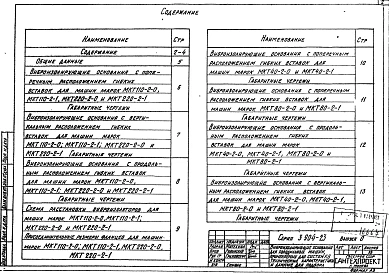 Содержание
Наименование
Стр
Содержание
2-4
Общие данные
5
Виброизолирующие основания с попе-
речным расположением гибких
вставок для машин марок МКТ110-2-0,
МКТ110-2-1, МКТ220-2-0 и МКТ220-2-1
Габаритные чертежи
6
Виброизолирующие основания с верти-
кальным расположением гибких
вставок для машин марок
МКТ110-2-0, МКТ110-2-1, МКТ220-2-0 и
МКТ220-2-1 Габаритные чертежи
7
Виброизолирующие основания с продоль-
ным расположением гибких вставок
для машин марок МКТ110-2-0,
МКТ110-2-1, МКТ220-2-0 и МКТ220-2-1
Габаритные чертежи
8
Схемы расстановки виброизоляторов для
машин марок МКТ110-2-0, МКТ110-2-1,
МКТ220-2-0 и МКТ220-2-1
Присоединительные размеры фланцев для машин
марок МКТ110-2-0, МКТ110-2-1, МКТ220-2-0,
МКТ 220-2-1
9
Наименование
Стр
Виброизолирующие основания с поперечным
расположением гибких вставок для
машин марок МКТ40-2-0 и МКТ40-2-1
Габаритные чертежи
10
Виброизолирующие основания с поперечным
расположением гибких вставок для
машин марок МКТ80-2-0 и МКТ80-2-1
Габаритные чертежи
11
Виброизолирующие основания с продоль-
ным расположением гибких
вставок для машин марок
МКТ40-2-0, МКТ40-2-1, МКТ80-2-0 и
МКТ80-2-1
Габаритные чертежи
12
Виброизолирующие основания с вертикаль-
ным расположением гибких вставок для
машин марок МКТ40-2-0, МКТ40-2-1,
МКТ80-2-0 и МКТ80-2-1
Габаритные чертежи
13
Серия 3.904-23
Выпуск 0
Сантехпроект